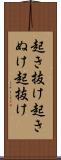 起き抜け起き
ぬけ起抜け